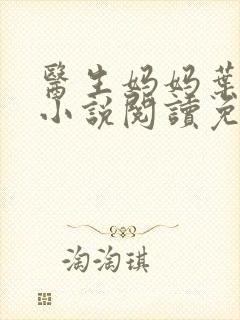 醫生媽媽葉
小說閱讀免
淘淘琪